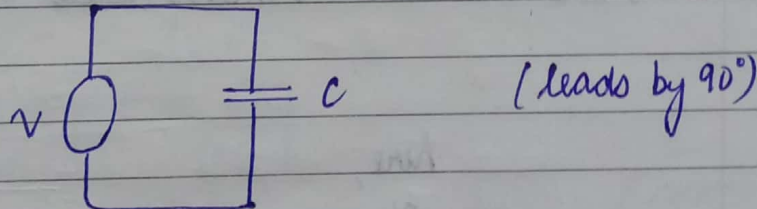 V C (leads by 90°)